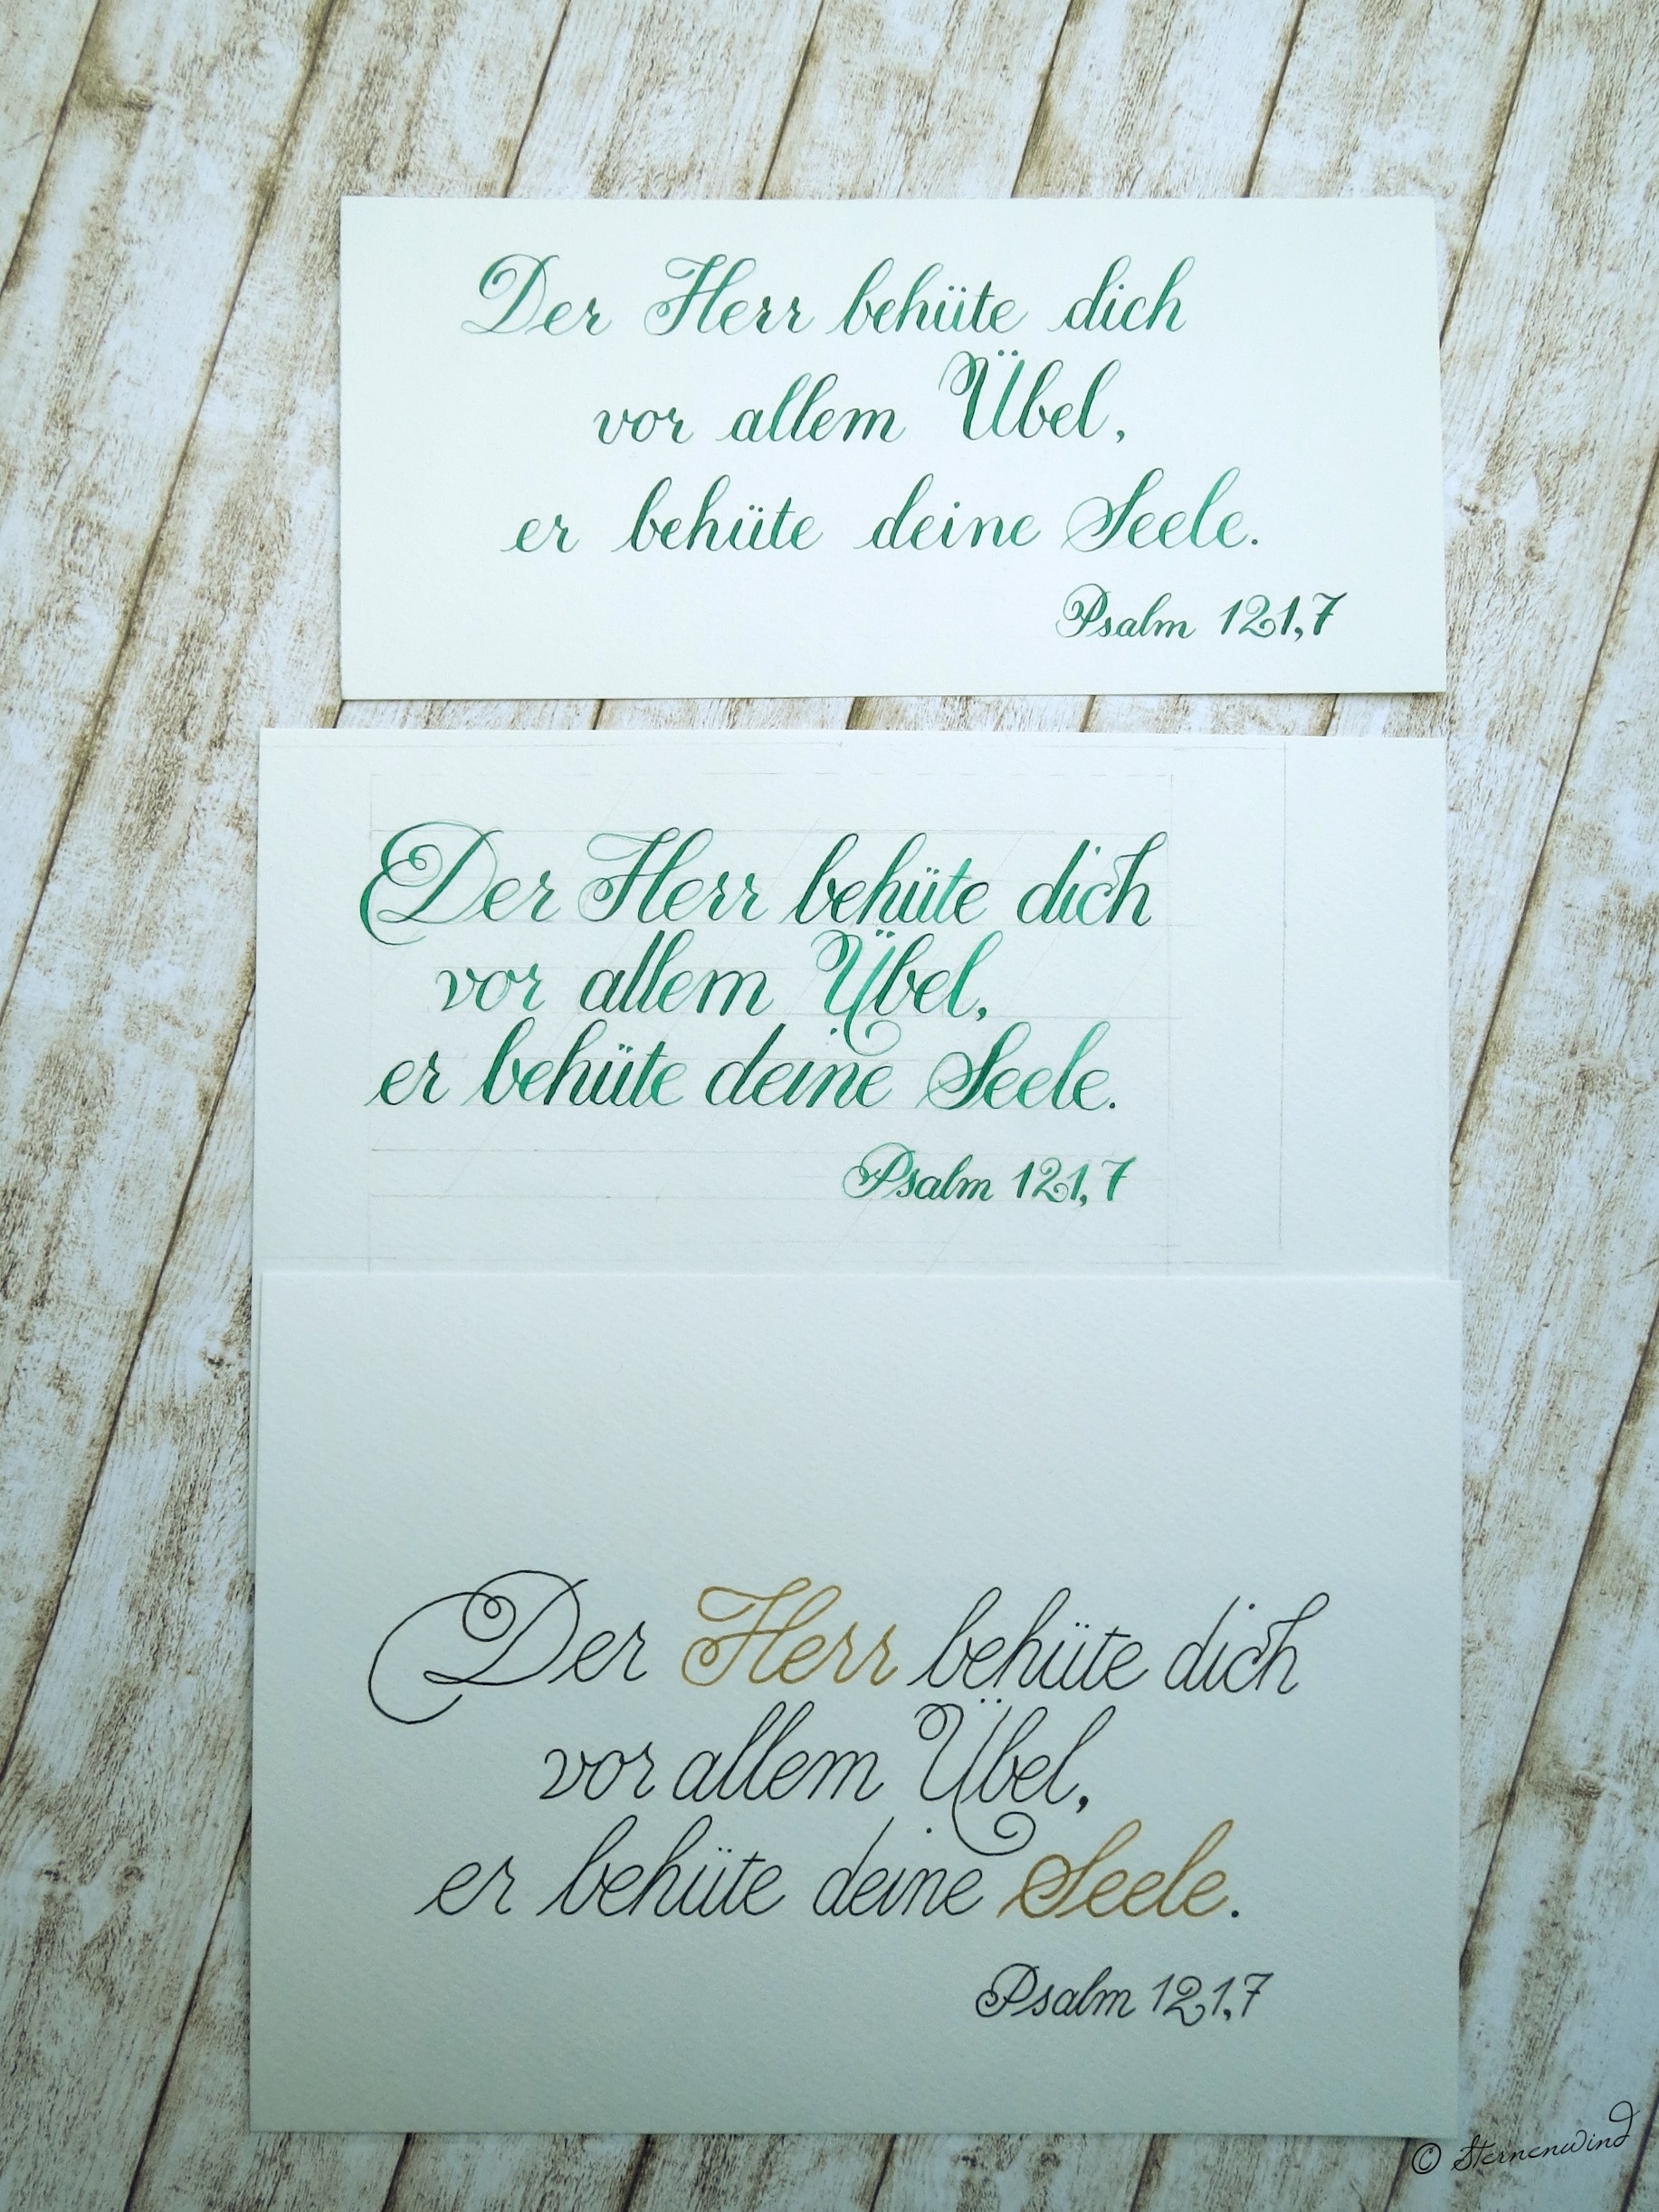 Der Herr behüte dich
vor allem Übel,
er behüte deine Seele.
Psalm 121,7
Der Herr behüte dich
vor allem Übel,
er behüte deine Seele.
Psalm 121,7
Der Herr behüte dich
vor allem Übel,
er behüte deine Seele.
Psalm 121,7
© Sternenwind